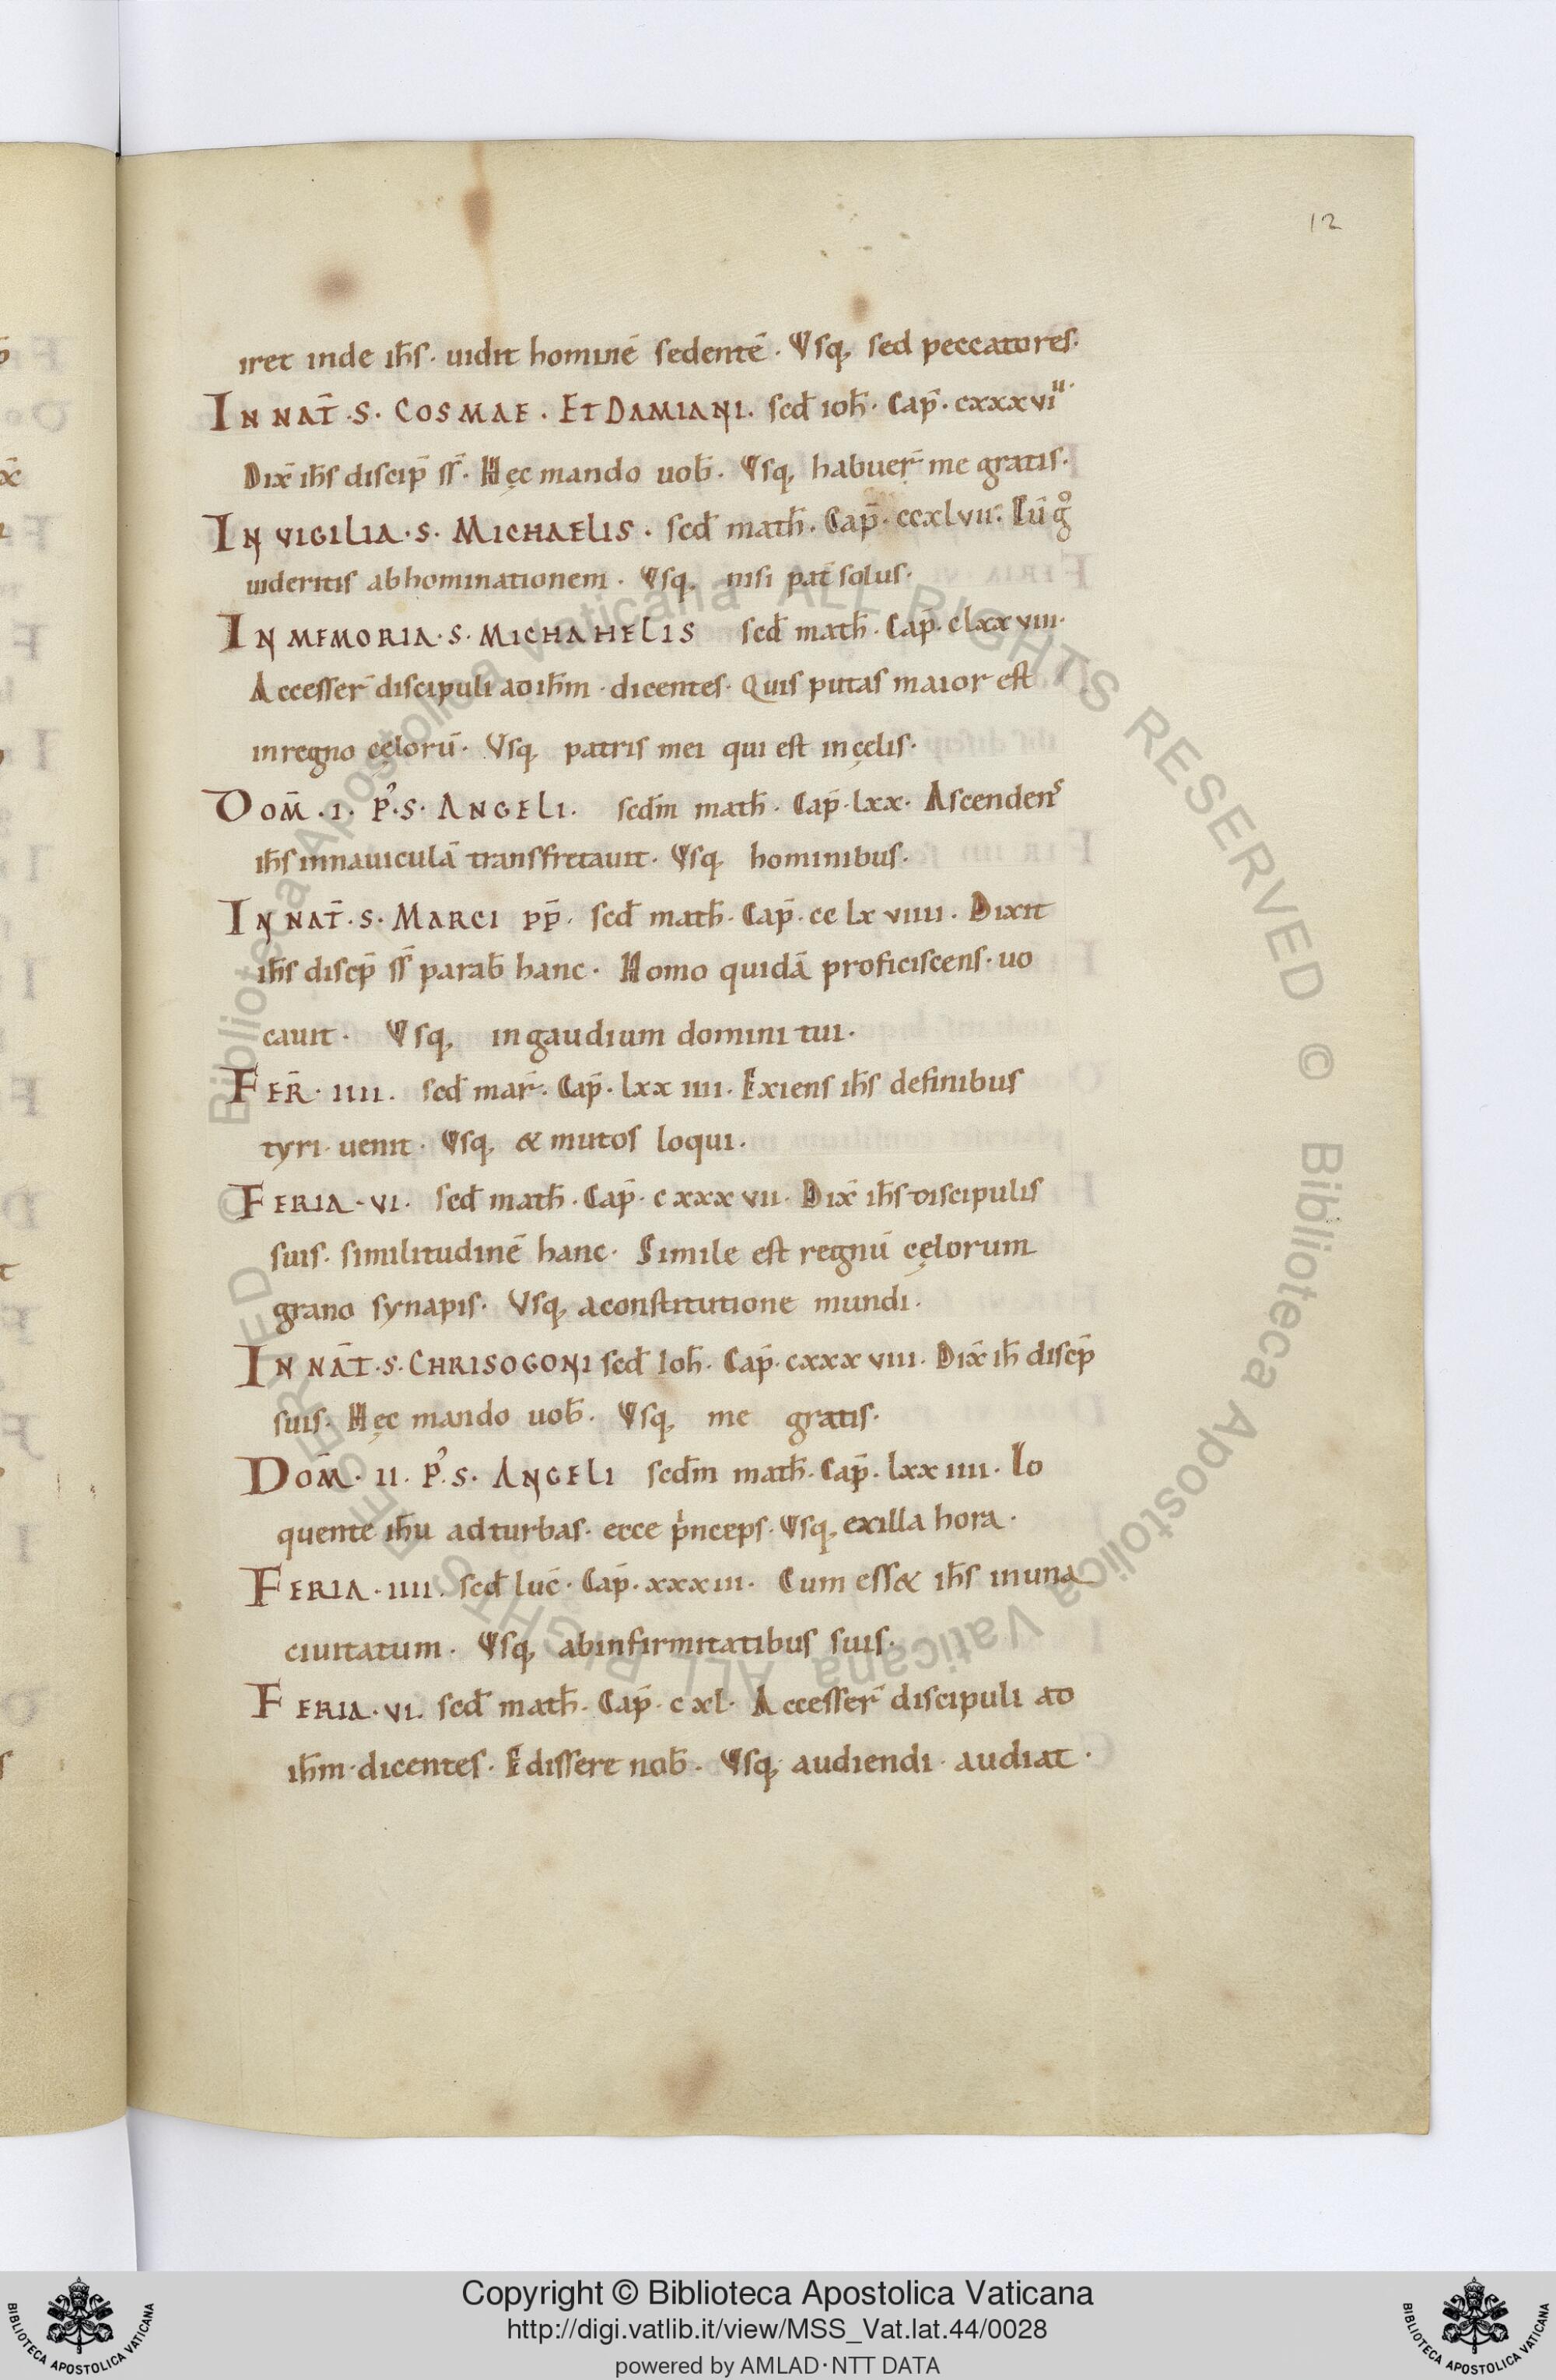 12
iret inde ih̄s · uidit hominē sedentē · Vsq, sed peccatores ·
IN NAT̄ · S · COSMAE · ET DAMIANI · scd̄ ioh̄ · Cap̄ · cxxxvi ii ·
Dix̄ ih̄s discip̄ ss̄ · Hęc mando uob̄ · Vsq, habuer̄ me gratis ·
IN VIGILIA · S · MICHAELIS · scd̄ math̄ · Cap̄ · ccxlvii · Cū g̊
uideritis abhominationem · Vsq, nisi pat̄ solus ·
IN MEMORIA · S · MICHAHELIS scd̄ math̄ · Cap̄ · clxxviii ·
Accesser̄ discipuli ad ih̄m · dicentes · Quis putas maior est
in regno cęlorū · Vsq, patris mei qui est in cęlis ·
DOM̄ · I · P᾽ · S · ANGELI · scdm̄ math̄ · Cap̄ · lxx · Ascendens
ih̄s in nauiculā transfretauit · Vsq, hominibus ·
IN NAT̄ · S · MARCI PP̄ · scd̄ math̄ · Cap̄ · cclxviiii · Dixit
ih̄s discp̄ ss̄ parab̄ hanc · Homo quidā proficiscens · uo
cauit · Vsq, in gaudium domini tui ·
FER̄ · IIII · scd̄ mar̄ · Cap̄ · lxxiiii · Exiens ih̄s definibus
tyri · uenit · Vsq, & mutos loqui ·
FERIA · VI · scd̄ math̄ · Cap̄ · cxxxvii · Dix̄ ih̄s discipulis
suis · similitudinē hanc · Simile est regnū cęlorum
grano synapis · Vsq, a constitutione mundi ·
IN NAT̄ · S · CHRISOGONI scd̄ Ioh̄ · Cap̄ · cxxxviii · Dix̄ ih̄ discp̄
suis · Hęc mando uob̄ · Vsq, me gratis ·
DOM̄ · II · P᾽ · S · ANGELI scdm̄ math̄ · Cap̄ · lxxiiii · Lo
quente ih̄u ad turbas · ecce pͥnceps · Vsq, ex illa hora ·
FERIA · IIII · scd̄ luc̄ · Cap̄ · xxxiii · Cum ess& ih̄s in una
ciuitatum · Vsq, ab infirmitatibus suis ·
FERIA · VI · scd̄ math̄ · Cap̄ · cxl · Accesser̄ discipuli ad
ih̄m · dicentes · Edissere nob̄ · Vsq, audiendi · audiat ·
Biblioteca Apostolica Vaticana ALL RIGHTS RESERVED ©
Biblioteca Apostolica Vaticana ALL RIGHTS RESERVED ©
Copyright © Biblioteca Apostolica Vaticana
http://digi.vatlib.it/view/MSS_Vat.lat.44/0028
powered by AMLAD·NTT DATA
BIBLIOTECA APOSTOLICA VATICANA
BIBLIOTECA APOSTOLICA VATICANA